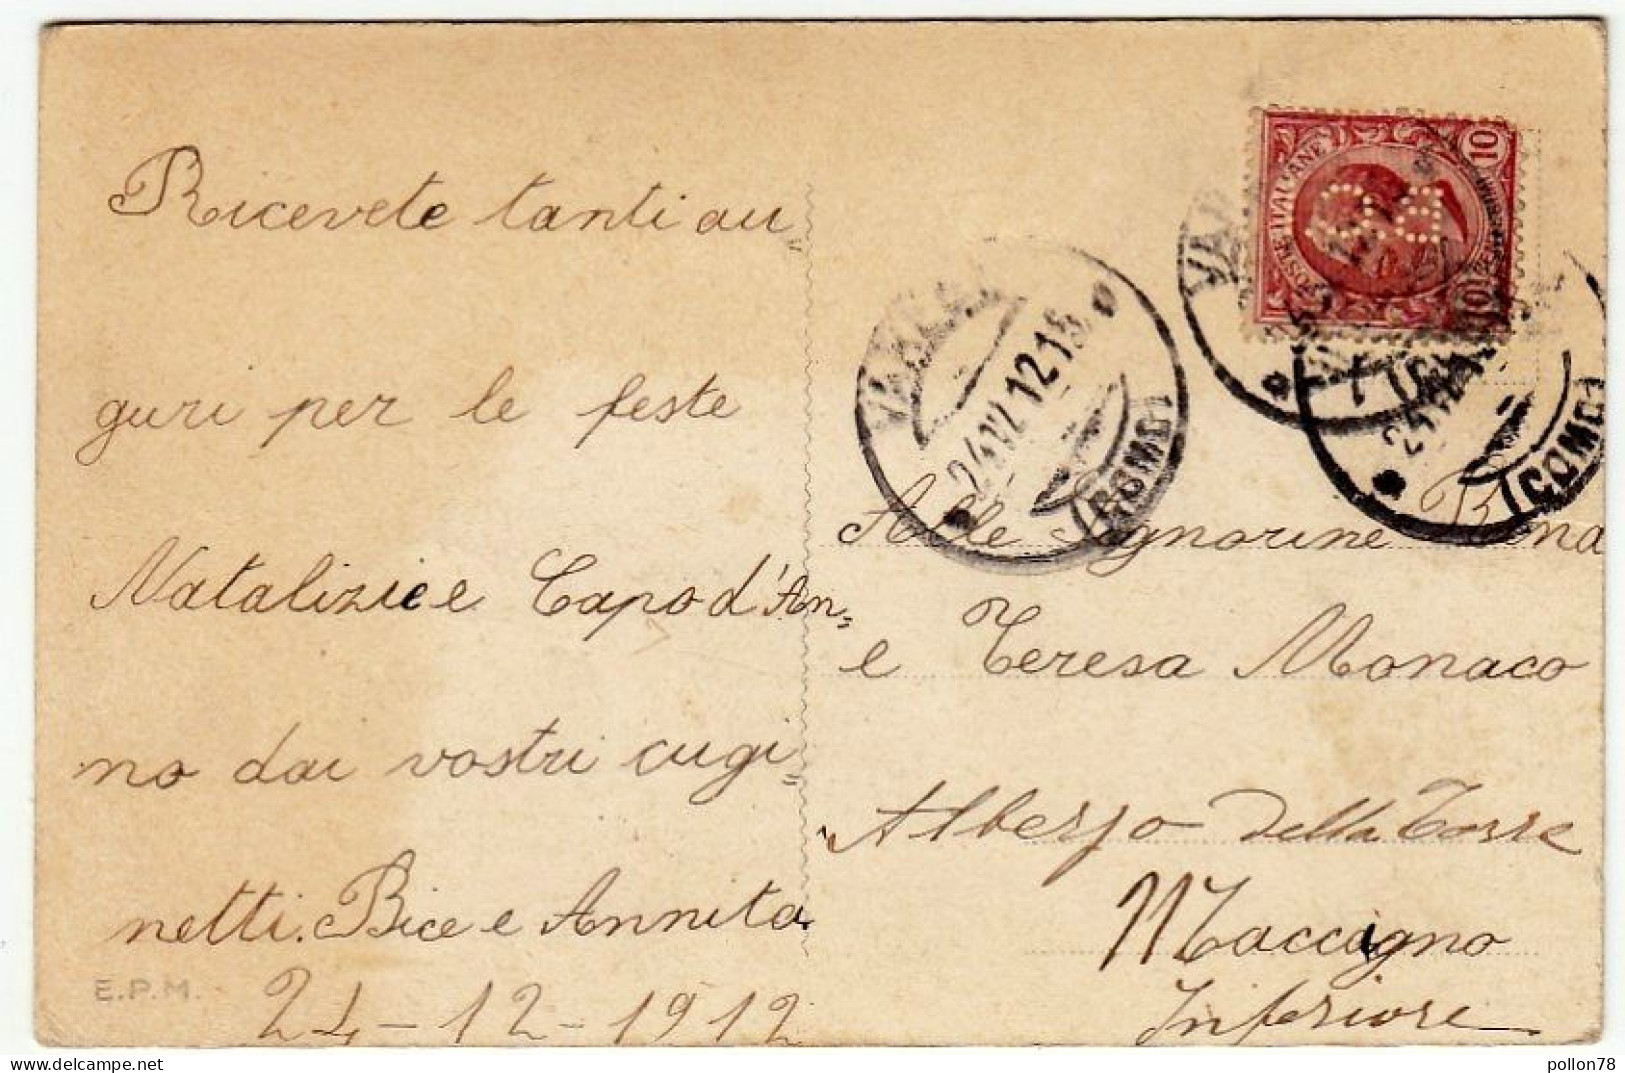 Ricevete tanti au
guri per le feste
Natalizie e Capo d'An=
no dai vostri cugi=
netti. Bice e Annita
24-12-1912
E.P.M.
POSTE ITALIANE
10
10
24 12 12.15
(COMO)
(COMO)
Alle Signorine
e Teresa Monaco
Albergo Della Torre
Maccagno
Inferiore
pollon78